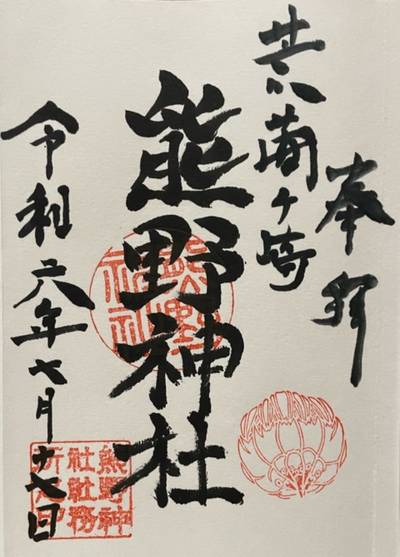 奉拝
ヶ崎
熊野神社
令和六年七月十七日
熊野
神社
熊野神
社社務
所之印